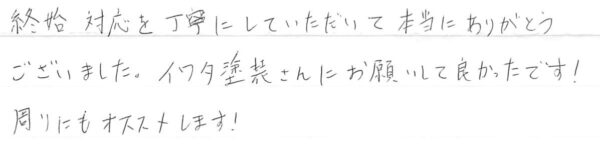 終始 対応を丁寧にしていただいて本当にありがとう
ございました。イワタ塗装さんにお願いして良かったです!
周りにもオススメします!